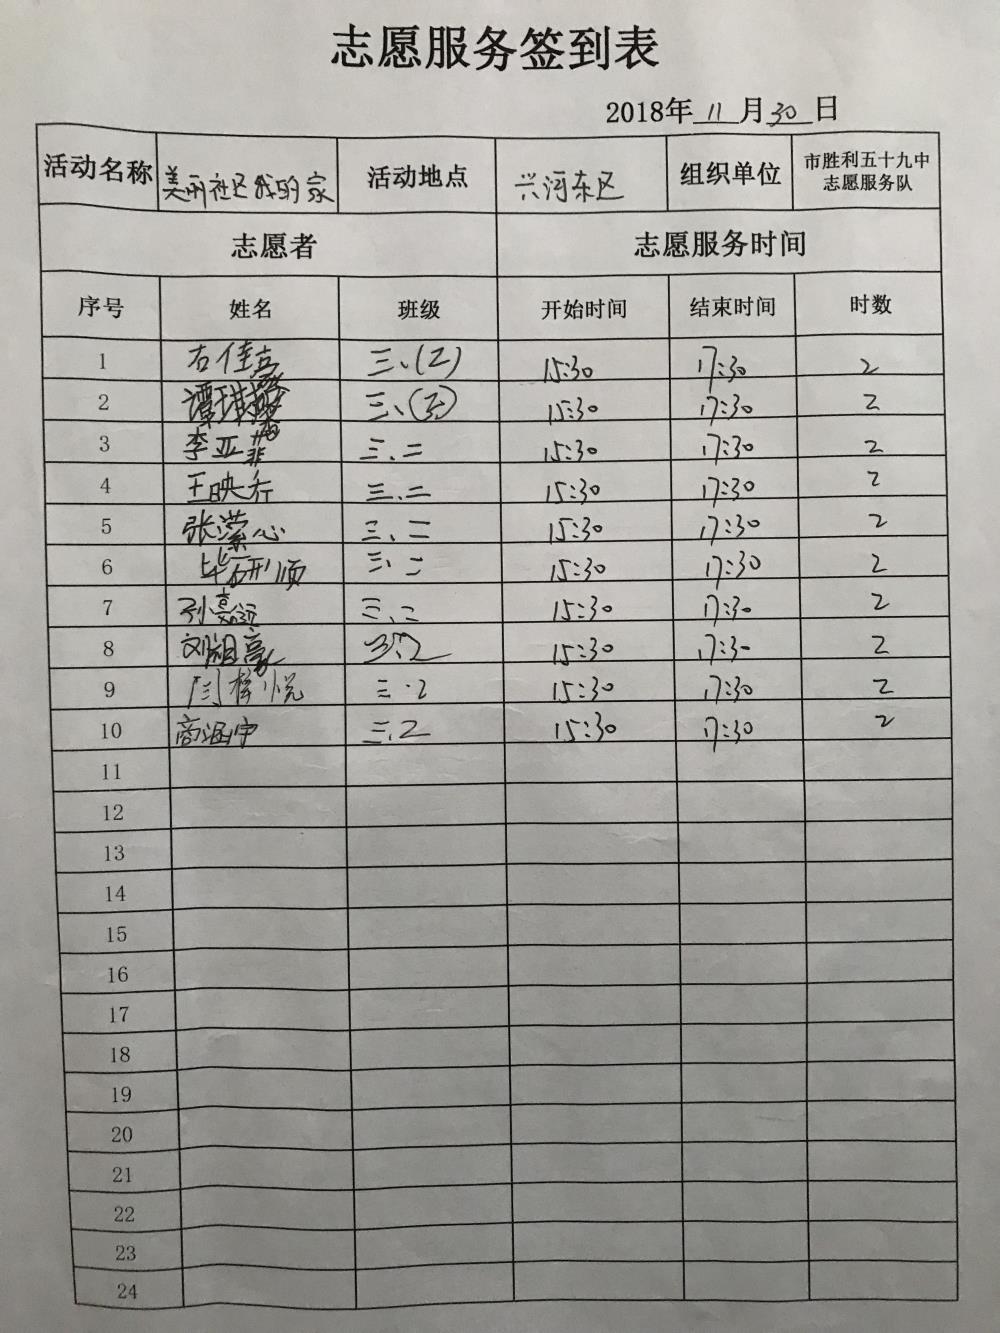 志愿服务签到表
2018年 11 月 30 日
活动名称 美丽社区我的家 活动地点 兴河东区 组织单位 市胜利五十九中
志愿服务队
志愿者 志愿服务时间
序号 姓名 班级 开始时间 结束时间 时数
1 石佳 三、(2) 15:30 17:30 2
2 谭 三、(2) 15:30 17:30 2
3 李亚菲 三、二 15:30 17:30 2
4 王映 三、二 15:30 17:30 2
5 张滢心 三、二 15:30 17:30 2
6 毕研顺 三、二 15:30 17:30 2
7 孙嘉 三、二 15:30 17:30 2
8 刘 豪 3.2 15:30 17:30 2
9 闫梓悦 三.2 15:30 17:30 2
10 商涵宇 三.2 15:30 17:30 2
11
12
13
14
15
16
17
18
19
20
21
22
23
24